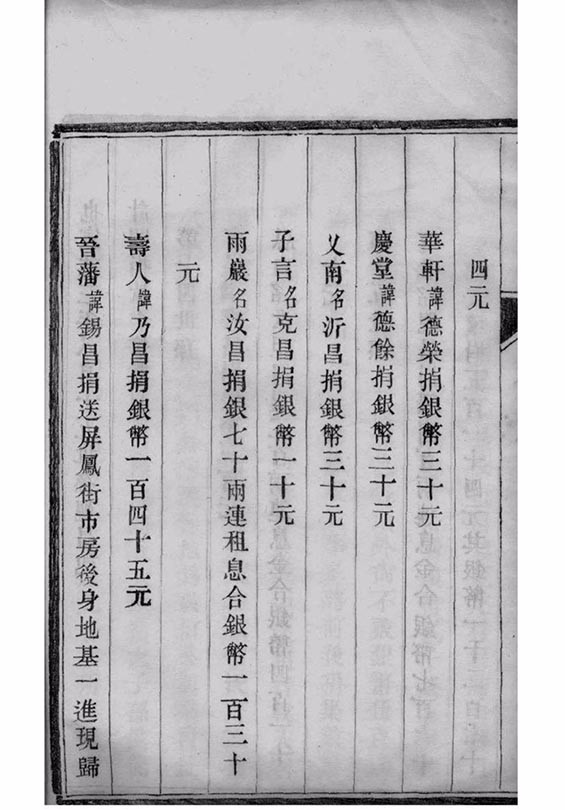 四元
華軒諱德榮捐銀幣三十元
慶堂諱德餘捐銀幣三十元
乂南名沂昌捐銀幣三十元
子言名克昌捐銀幣一十元
雨巖名汝昌捐銀七十兩連租息合銀幣一百三十
元
壽人諱乃昌捐銀幣一百四十五元
晉藩諱錫昌捐送屏鳳街市房後身地基一進現歸